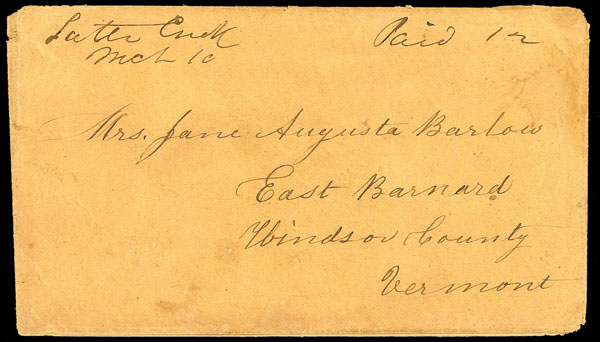 Sutter Creek Paid 12
Mch 10
Mrs. Jane Augusta Barlow
East Barnard
Windsor County
Vermont